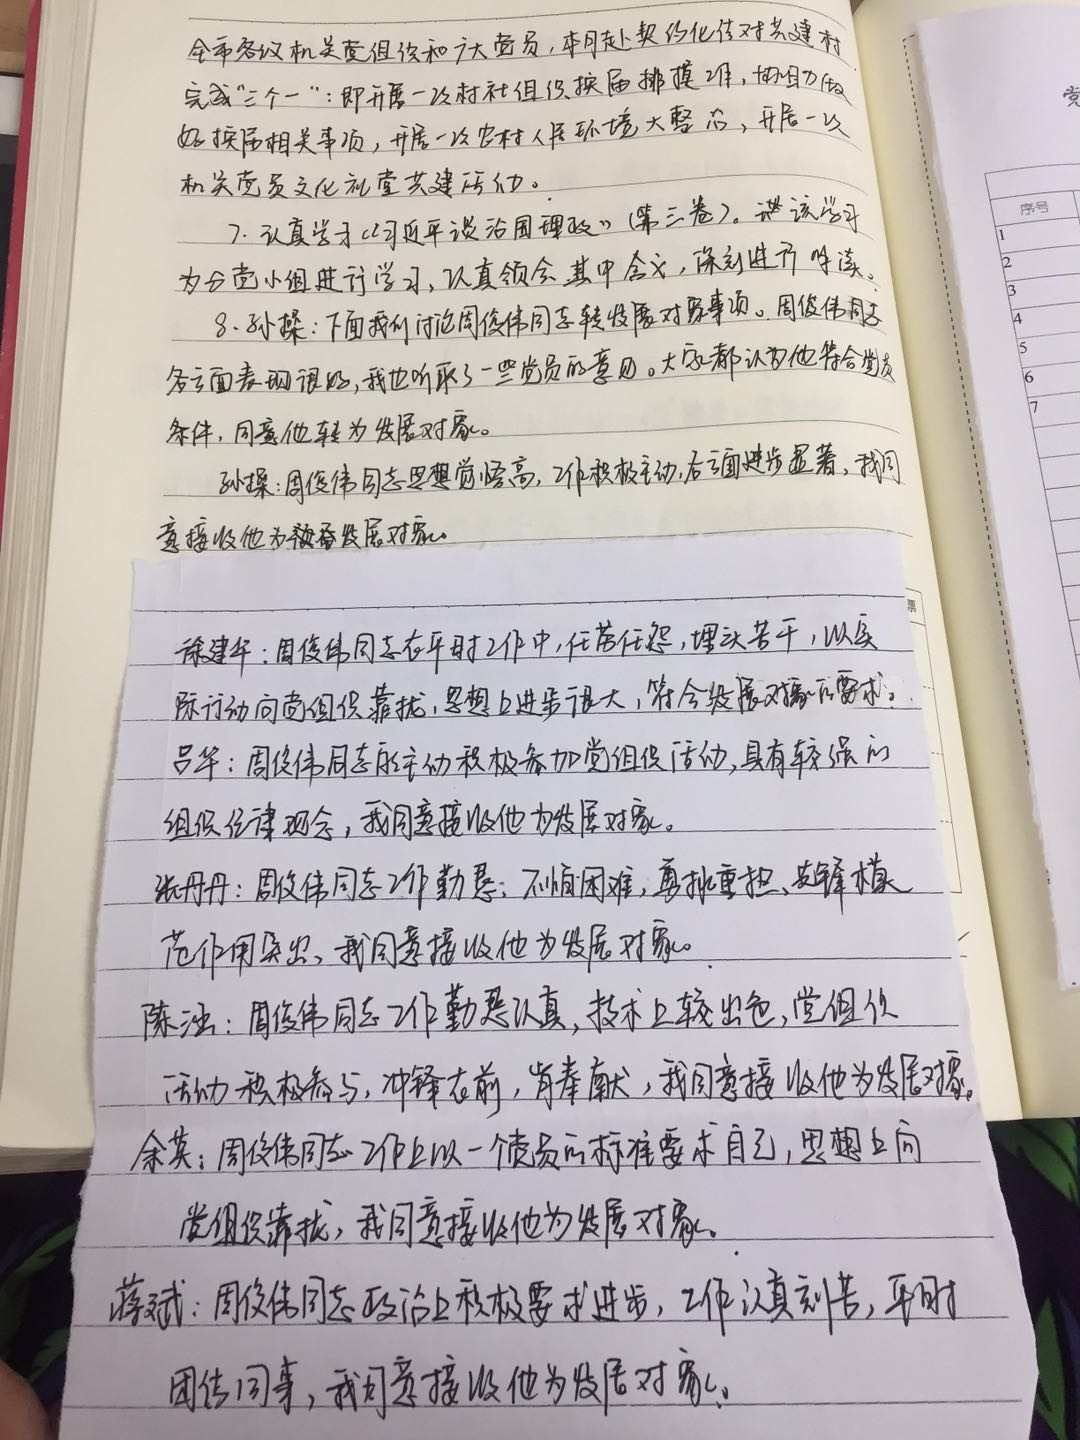 全市各级机关党组织和广大党员，本月赴契约化结对共建村
完成“三个一”：即开展一次村社组织换届排摸工作，协助做
好换届相关事项，开展一次农村人居环境大整治，开展一次
机关党员文化礼堂共建活动。
7、认真学习《习近平谈治国理政》（第三卷）。该学习
为分党小组进行学习，认真领会其中含义，深刻进行
8、孙操：下面我们讨论周俊伟同志转发展对象事项。周俊伟同志
各方面表现很好，我也听取了一些党员的意见。大家都认为他符合党员
条件，同意他转为发展对象。
孙操：周俊伟同志思想觉悟高，工作积极主动，各方面进步显著，我同
意接收他为发展对象。
徐建华：周俊伟同志在平时工作中，任劳任怨，埋头苦干，以实
际行动向党组织靠拢，思想上进步很大，符合发展对象的要求。
吕华：周俊伟同志能主动积极参加党组织活动，具有较强的
组织纪律观念，我同意接收他为发展对象。
张丹丹：周俊伟同志工作勤恳，不怕困难，勇挑重担、先锋模
范作用突出，我同意接收他为发展对象。
陈涵：周俊伟同志工作勤恳认真，技术上较出色，党组织
活动积极参与，冲锋在前，肯奉献，我同意接收他为发展对象。
余英：周俊伟同志工作上以一个党员的标准要求自己，思想上向
党组织靠拢，我同意接收他为发展对象。
蒋斌：周俊伟同志政治上积极要求进步，工作认真刻苦，平时
团结同事，我同意接收他为发展对象。
党
序号
1
2
3
4
5
6
7
票